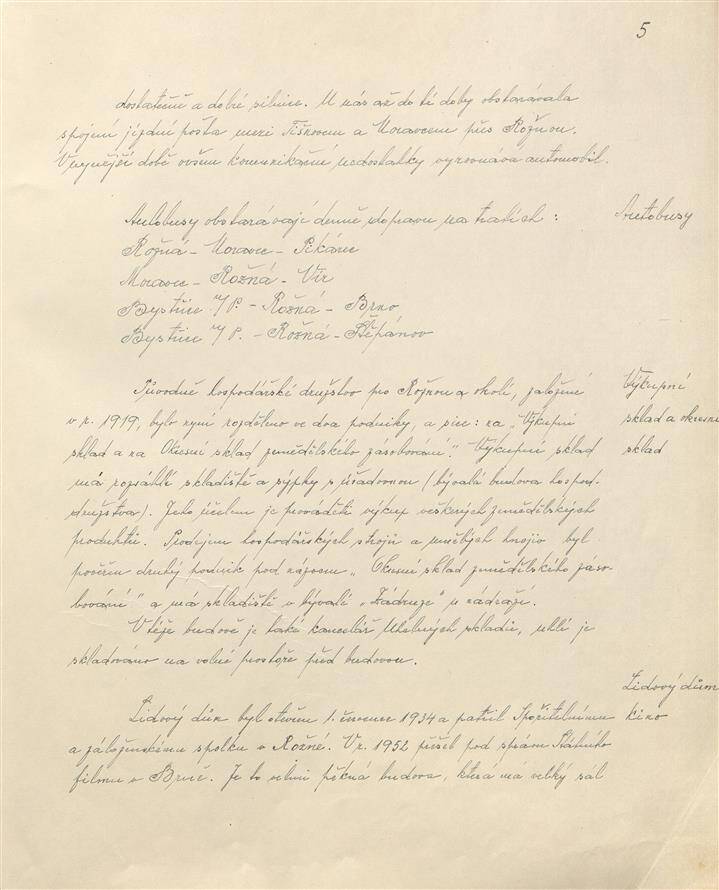 5
dostatečně a dobré silnice. U nás až do té doby obstarávala
spojení jízdní pošta mezi Tišnovem a Moravcem přes Rožnou.
V nynější době ovšem komunikační nedostatky vyrovnává automobil.
Autobusy obstarávají denně dopravu na tratích :
Autobusy
Rožná - Moravec - Pikárec
Moravec - Rožná - Vír
Bystřice n/P. - Rožná - Brno
Bystřice n/P. - Rožná - Štěpánov
Původně hospodářské družstvo pro Rožnou a okolí, založené
Výkupní
v r. 1919, bylo nyní rozděleno ve dva podniky, a sice: na „Výkupní
sklad a okresní
sklad a na Okresní sklad zemědělského zásobování." Výkupní sklad
sklad
má rozsáhlé skladiště a sýpky s úřadovnou (bývalá budova hospod.
družstva). Jeho účelem je prováděti výkup veškerých zemědělských
produktů. Prodejem hospodářských strojů a umělých hnojiv byl
pověřen druhý podnik pod názvem „Okresní sklad zemědělského záso-
bování" a má skladiště v bývalé „Zádruze" u nádraží.
V téže budově je také kancelář Uhelných skladů, uhlí je
skladováno na volné prostoře před budovou.
Lidový dům
Lidový dům byl otevřen 1. července 1934 a patřil Spořitelnímu
kino
a záloženskému spolku v Rožné. V r. 1952 přešel pod správu Státního
filmu v Brně. Je to velmi pěkná budova, která má velký sál